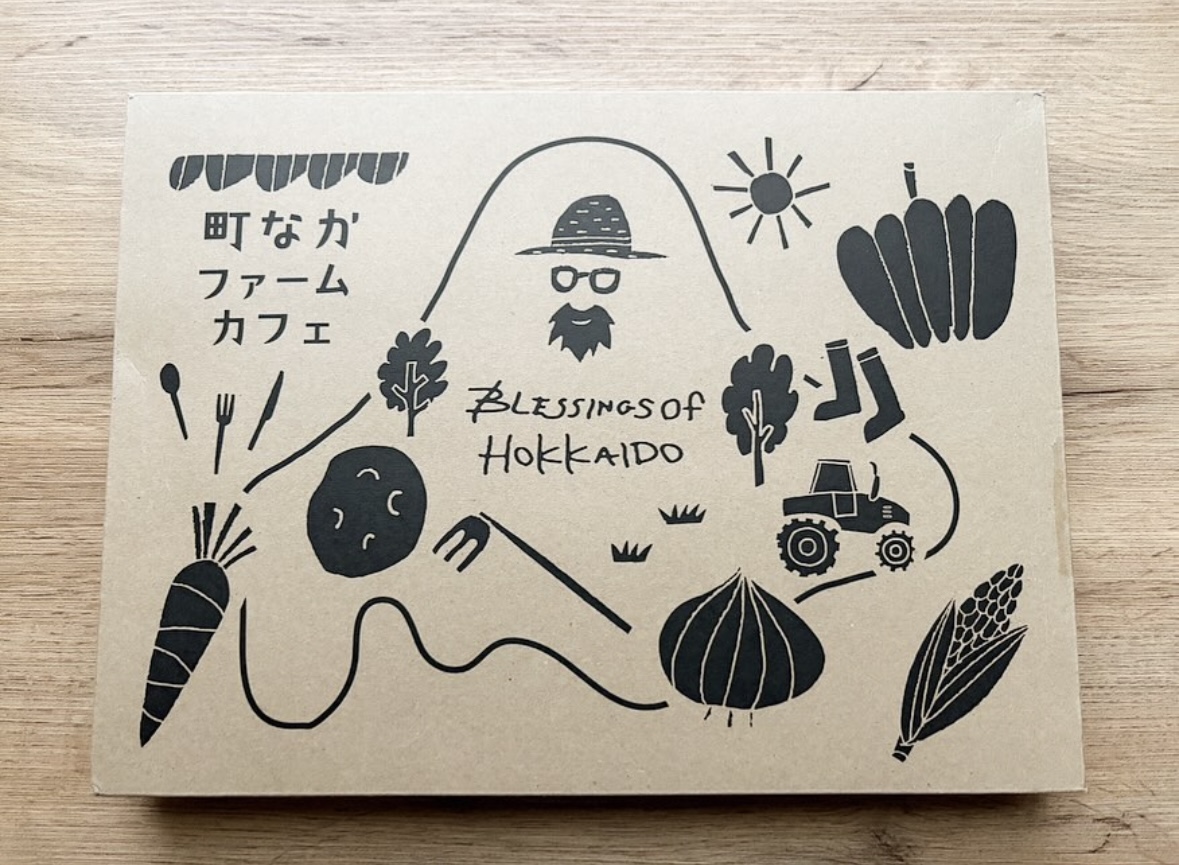 町なか
ファーム
カフェ
BLESSINGS OF
HOKKAIDO